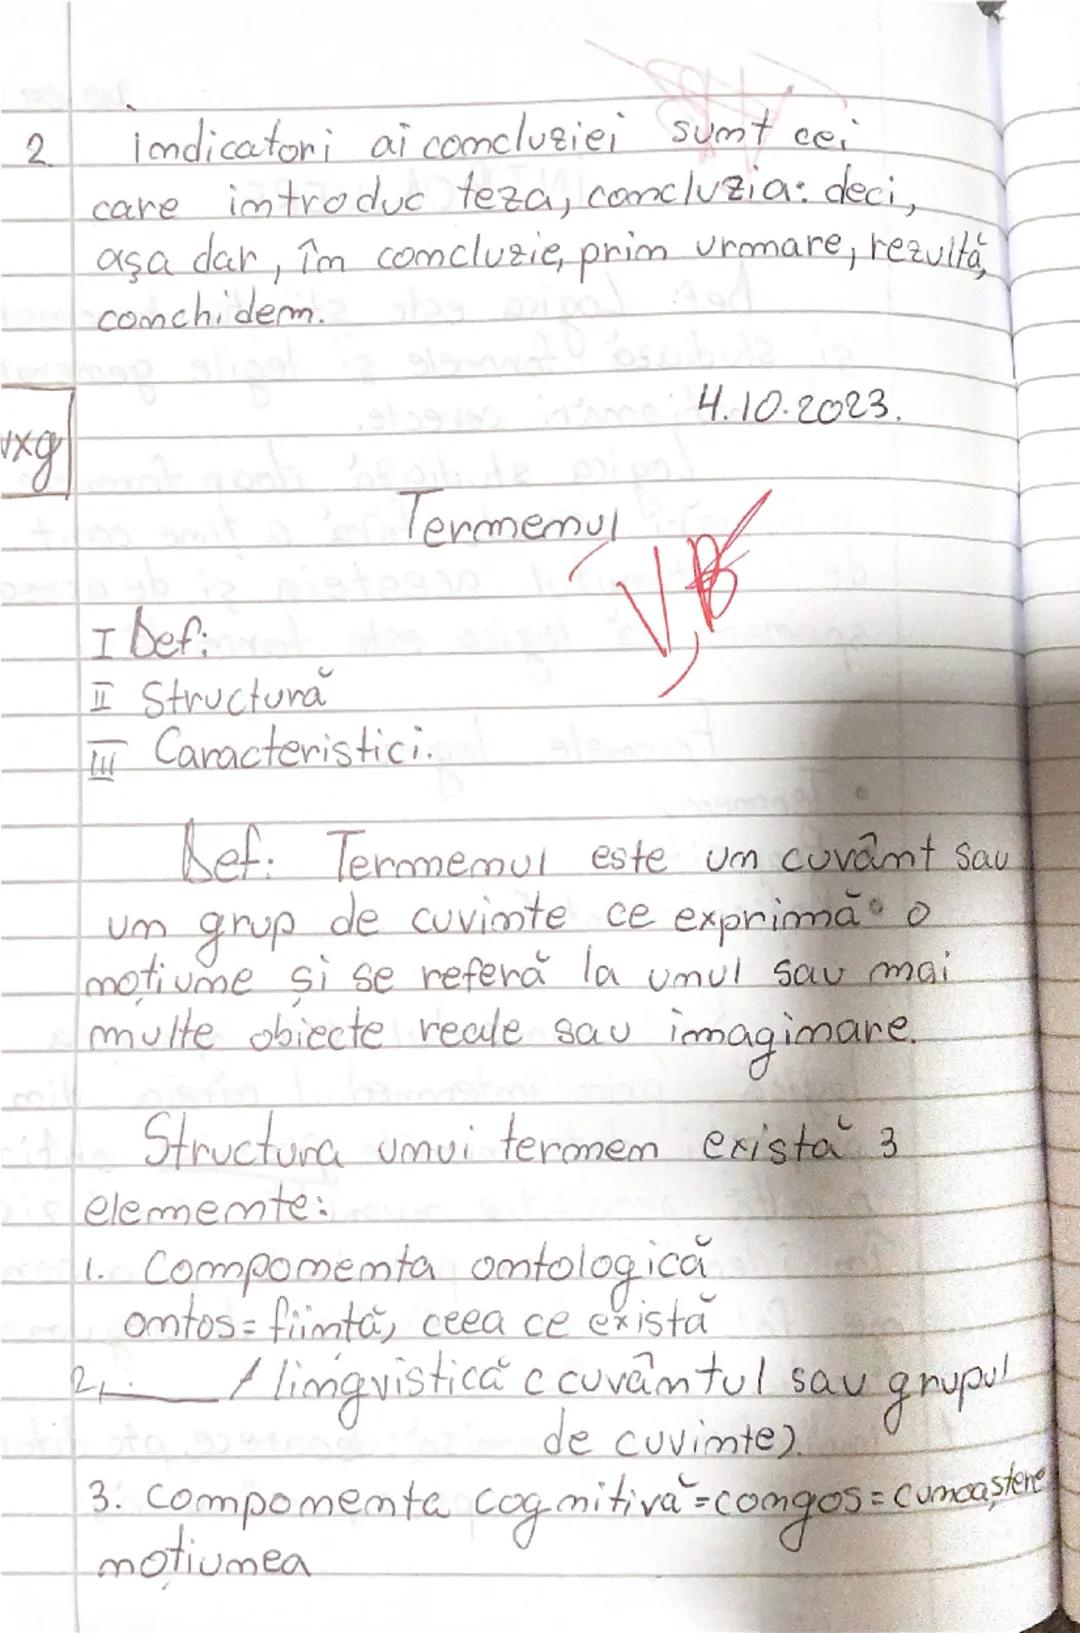 2. indicatori ai concluziei sunt cei
care introduc teza, concluzia: deci,
așa dar, în concluzie, prin urmare, rezultă,
conchidem.
4.10.2023.
Termenul
V,B
I Def:
II Structură
III Caracteristici.
Def: Termenul este un cuvânt sau
un grup de cuvinte ce exprimă o
noțiune și se referă la unul sau mai
multe obiecte reale sau imaginare.
Structura unui termen există 3
elemente:
1. Componenta ontologică
ontos = ființă, ceea ce există
2. ____ / lingvistică (cuvântul sau grupul
de cuvinte).
3. componenta cognitivă = congos = cunoaștere
noțiunea